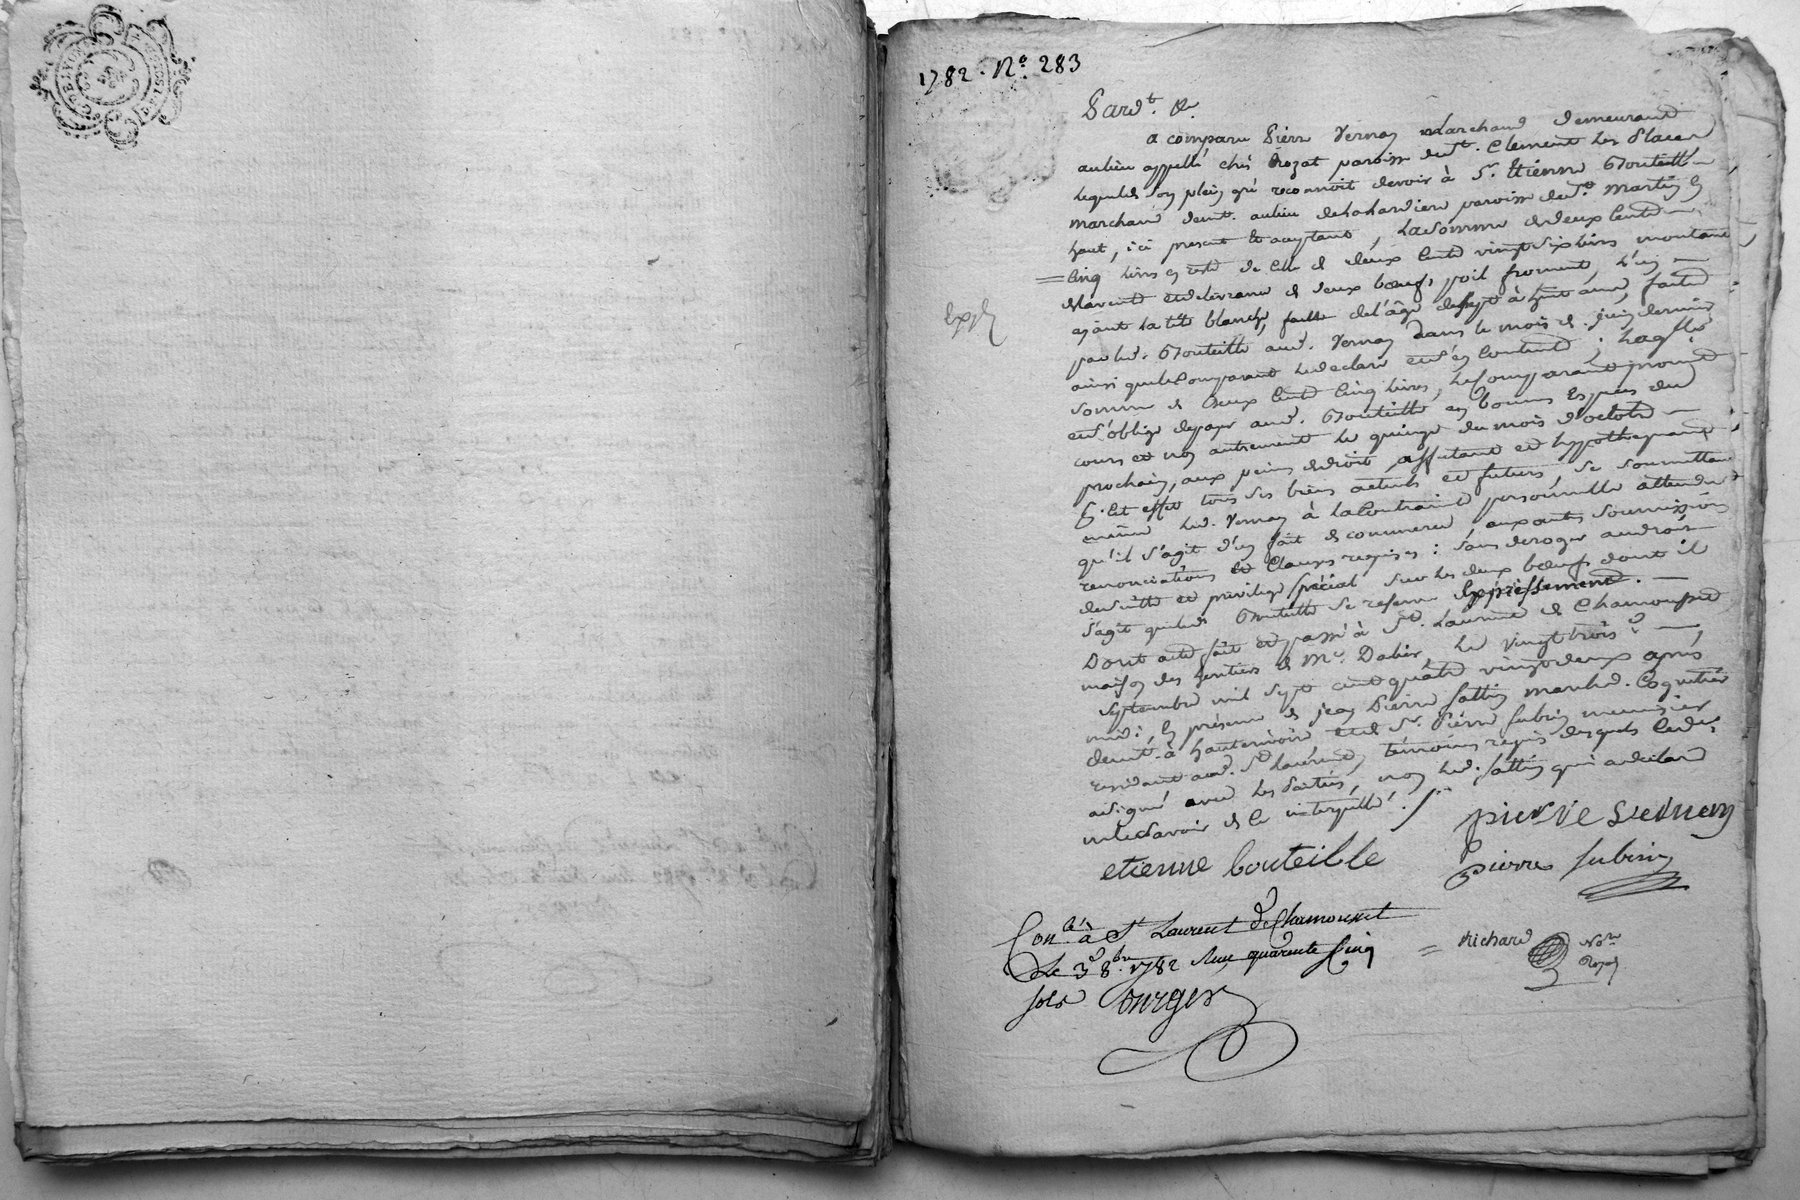 1782. No. 283
Pard.t &c.
a comparu Pierre Vernay Marchand demeurant
au lieu appellé chés Rozat paroisse de St. Clement les Places
lequel de son plein gré reconnoit devoir à Sr. Etienne Bouteille
marchand demt. au lieu de la paroisse de St. Martin en
haut, ici present et aceptant, la somme de deux Cents
Cinq livres en reste de Celle de deux Cents vingt six livres montant
de la vente et delivrance de deux bœufs poil froment, l'un
ayant la tête blanche, faitte de l'âge de sept à huit ans, faite
par led. Bouteille aud. Vernay dans le mois de juin dernier
ainsi que le Comparant le declare et s'en Contente; laq.lle
somme de deux Cents Cinq livres, le Comparant promet
et s'oblige de payer aud. Bouteille en bonnes Especes du
cours et non autrement le quinze du mois d'octobre
prochain, aux peines de droit, affectant et hypothequant
à Cet effet tous ses biens actuels et futurs, se soumettant
même led. Vernay à la Contrainte personnelle attendu
qu'il s'agit d'un fait de commerce, aux autres soumissions
renonciations et Clauses requises: sans deroger au droit
de suitte et privilege spécial sur les deux bœufs dont il
s'agit que led. Bouteille se reserve Expressement.
Dont acte fait et passé à St. Laurent de Chamousset
maison des heritiers de Mr. Dalier, le vingt trois
septembre mil sept cent quatre vingt deux après
midi, En présence de jean Pierre marchd. Coquetier
demt. à hauterivoire et de Sr. Pierre Subrin meunier
residant aud. St. Laurent, témoins requis desquels Ced.
a signé avec les Parties, non led. qui a declaré
ne le savoir de ce interpellé./.
Expd.
pierre vernay
etienne bouteille
pierre subrin
Con.lé à St Laurent de Chamousset
Le 3e 8bre 1782 Reçu quarente Cinq
sols Bourger
Richard No.re
Royal